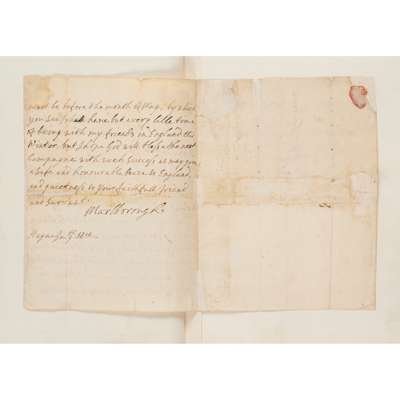 not be before the month of May, by which
you see I shall have but a very little time
of being with my friends in England this
Winter, but I hope God will bless the next
Campagne with such success as may give
a safe and honourable Peace to England,
and quietness to your faithfull friend
and servant
Marlborough
Hague